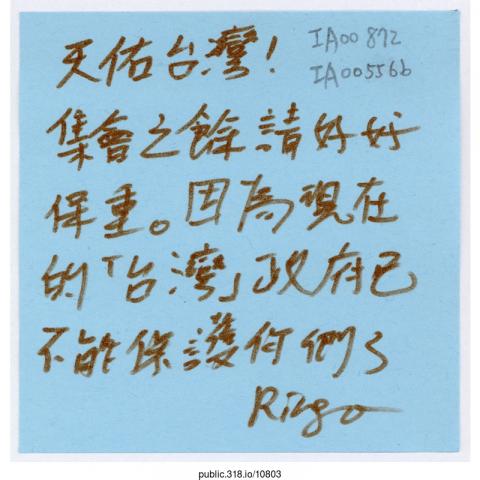 天佑台灣!
IA00872
IA005566
集會之餘請好好
保重。因為現在
的「台灣」政府已
不能保護你們了
Ringo
public.318.io/10803